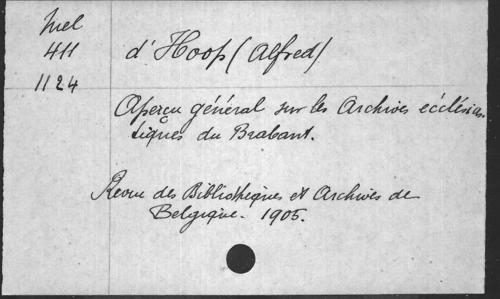 Mel
411
1124
d'Hoop (Alfred)
Aperçu général sur les Archives ecclésias-
tiques du Brabant.
Revue des Bibliothèques et Archives de
Belgique. 1905.